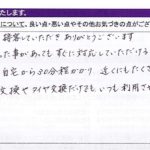 たします。
について、良い点・悪い点やその他お気づきの点がござ
接客していただき ありがとうございます
た事があっても すぐに対応していただける
自宅から30分程かかり 近くにもたくさ
交換やタイヤ交換だけでも、いつも利用させ